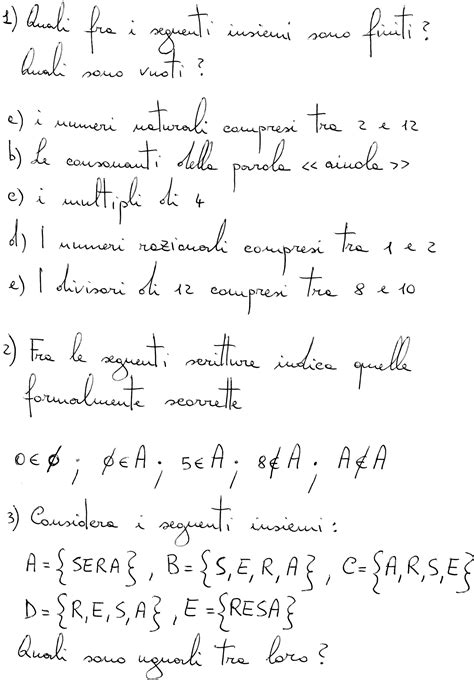 1) Quali fra i seguenti insiemi sono finiti?
Quali sono vuoti?
a) i numeri naturali compresi tra 2 e 12
b) Le consonanti della parola << aiuola >>
c) i multipli di 4
d) I numeri razionali compresi tra 1 e 2
e) I divisori di 12 compresi tra 8 e 10
2) Fra le seguenti scritture indica quelle
formalmente scorrette
0∈∅ ; ∅∈A ; 5∈A ; 8∉A ; A∉A
3) Considera i seguenti insiemi:
A={SERA}, B={S,E,R,A}, C={A,R,S,E}
D={R,E,S,A}, E={RESA}
Quali sono uguali tra loro?